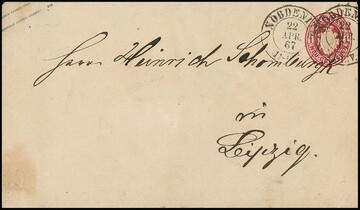 NORDEN
22
APR.
67
Herrn Heinrich Schomburgk
in
Leipzig.